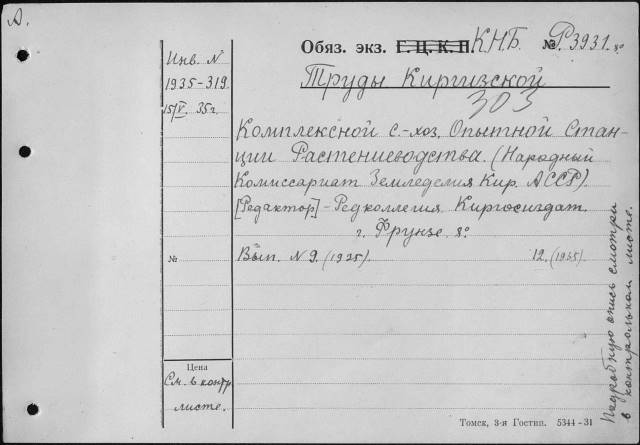 А.
Обяз. экз. Г. Ц. К. П КНБ. № Р3931. 8о
Инв. N
1935-319.
15/V. 35г.
Труды Киргизской
303
Комплексной с.-хоз. Опытной Стан-
ции Растениеводства. (Народный
Комиссариат Земледелия Кир. АССР).
[Редактор]-Редколлегия Киргосиздат.
г. Фрунзе. 8о
№ Вып. N 9. (1935). 12. (1935).
Цена
См. в контр.
листе.
Подробную опись смотри
в контрольном листе.
Томск, 3-я Гостип. 5344-31